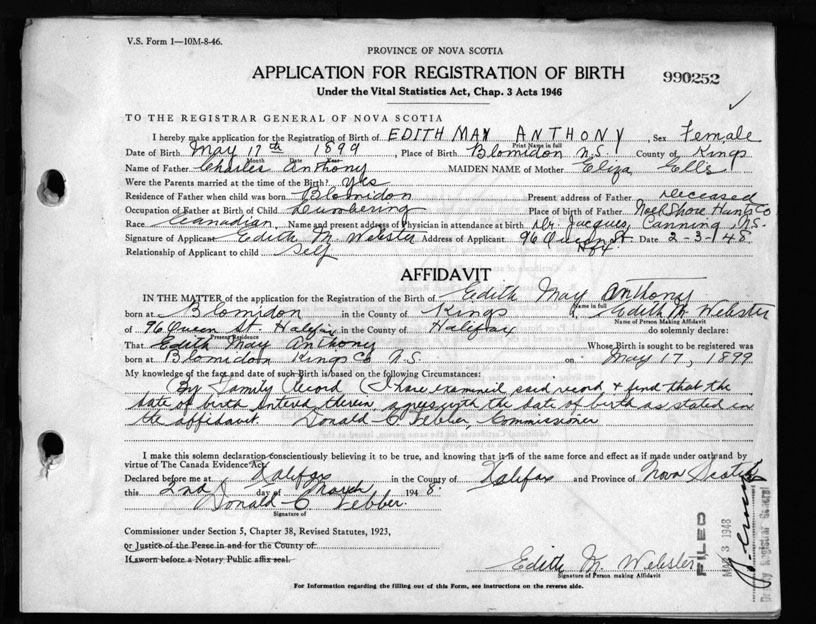 V.S. Form 1—10M-8-46.
PROVINCE OF NOVA SCOTIA
APPLICATION FOR REGISTRATION OF BIRTH
990252
Under the Vital Statistics Act, Chap. 3 Acts 1946
TO THE REGISTRAR GENERAL OF NOVA SCOTIA
I hereby make application for the Registration of Birth of EDITH MAY ANTHONY, Sex Female
Print Name in full
Date of Birth May 17th 1899, Place of Birth Blomidon N.S. County of Kings
Month Date Year
Name of Father Charles Anthony MAIDEN NAME of Mother Eliza Ells
Were the Parents married at the time of the Birth? Yes
Residence of Father when child was born Blomidon Present address of Father deceased
Occupation of Father at Birth of Child Lumbering Place of birth of Father Noel Shore Hants Co
Race Canadian, Name and present address of Physician in attendance at birth Dr Jacques, Canning, N.S.
Signature of Applicant Edith M. Webster Address of Applicant 96 Queen St. Hfx. Date 2-3-48.
Relationship of Applicant to child self
AFFIDAVIT
IN THE MATTER of the application for the Registration of the Birth of Edith May Anthony
Name in full
born at Blomidon in the County of Kings I, Edith M. Webster
Name of Person Making Affidavit
of 96 Queen St. Halifax in the County of Halifax do solemnly declare:
Present Residence
That Edith May Anthony Whose Birth is sought to be registered was
born at Blomidon Kings Co N.S. on May 17, 1899
My knowledge of the fact and date of such Birth is based on the following Circumstances:
(By Family Record (I have examined said record & find that the
date of birth entered therein, agrees with the date of birth as stated in
the affidavit. Donald C. Webber, Commissioner
I make this solemn declaration conscientiously believing it to be true, and knowing that it is of the same force and effect as if made under oath and by
virtue of The Canada Evidence Act.
Declared before me at Halifax in the County of Halifax and Province of Nova Scotia
this 2nd day of March 1948.
Donald C. Webber.
Signature of
Commissioner under Section 5, Chapter 38, Revised Statutes, 1923,
or Justice of the Peace in and for the County of
If sworn before a Notary Public affix seal.
Edith M. Webster
Signature of Person making Affidavit
FILED
MAR 3 1948
Deputy Registrar General
For Information regarding the filling out of this Form, see instructions on the reverse side.